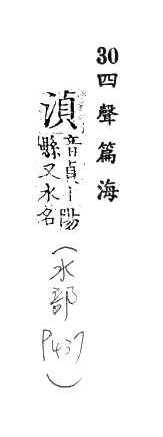 30四聲篇海
湞音貞丨陽
縣又水名
(水部
P437)